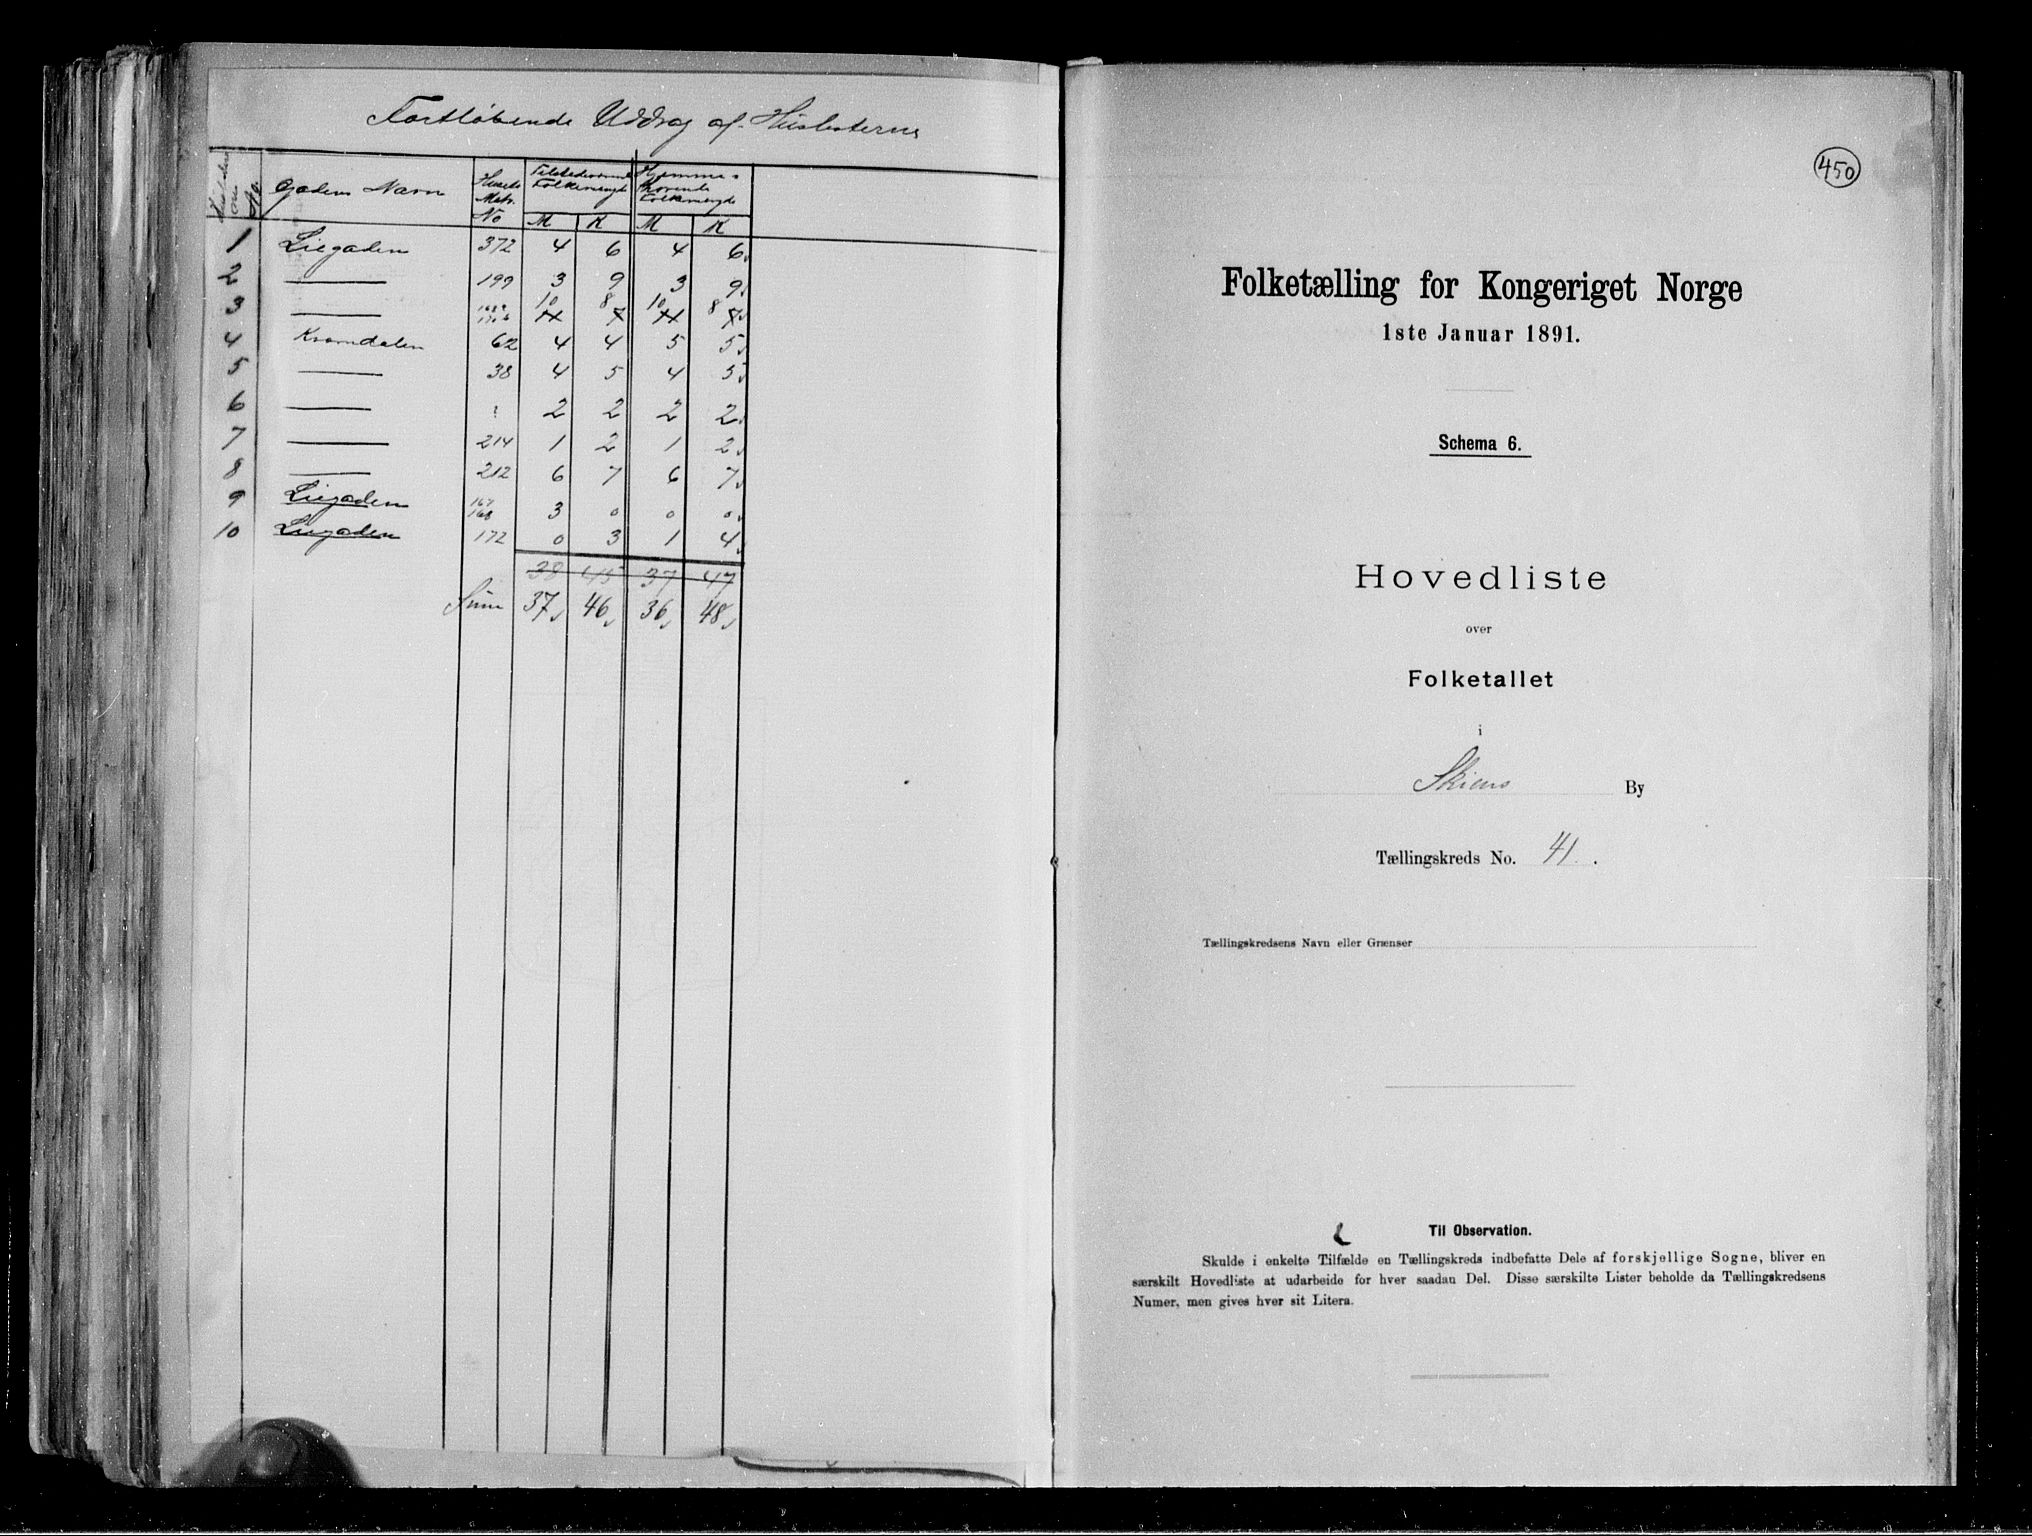 Fortløbende Uddrag af Huslisterne
No. Gadens Navn Husets Matr. No Tilstedeværende Folkemengde Hjemme-hørende Folkemengde
M K M K
1 Liegaden 372 4 6 4 6
2 — 199 3 9 3 9
3 — 10 8 10 8
4 Kværndalen 62 4 4 5 5
5 — 38 4 5 4 5
6 — 2 2 2 2
7 — 214 1 2 1 2
8 — 212 6 7 6 7
9 Liegaden 167 168 3 0 0 0
10 Liegaden 172 0 3 1 4
38 45 37 47
Sum 37 46 36 48
450
Folketælling for Kongeriget Norge
1ste Januar 1891.
Schema 6.
Hovedliste
over
Folketallet
i
Skiens By
Tællingskreds No. 41.
Tællingskredsens Navn eller Grænser
Til Observation.
Skulde i enkelte Tilfælde en Tællingskreds indbefatte Dele af forskjellige Sogne, bliver en
særskilt Hovedliste at udarbeide for hver saadan Del. Disse særskilte Lister beholde da Tællingskredsens
Numer, men gives hver sit Litera.